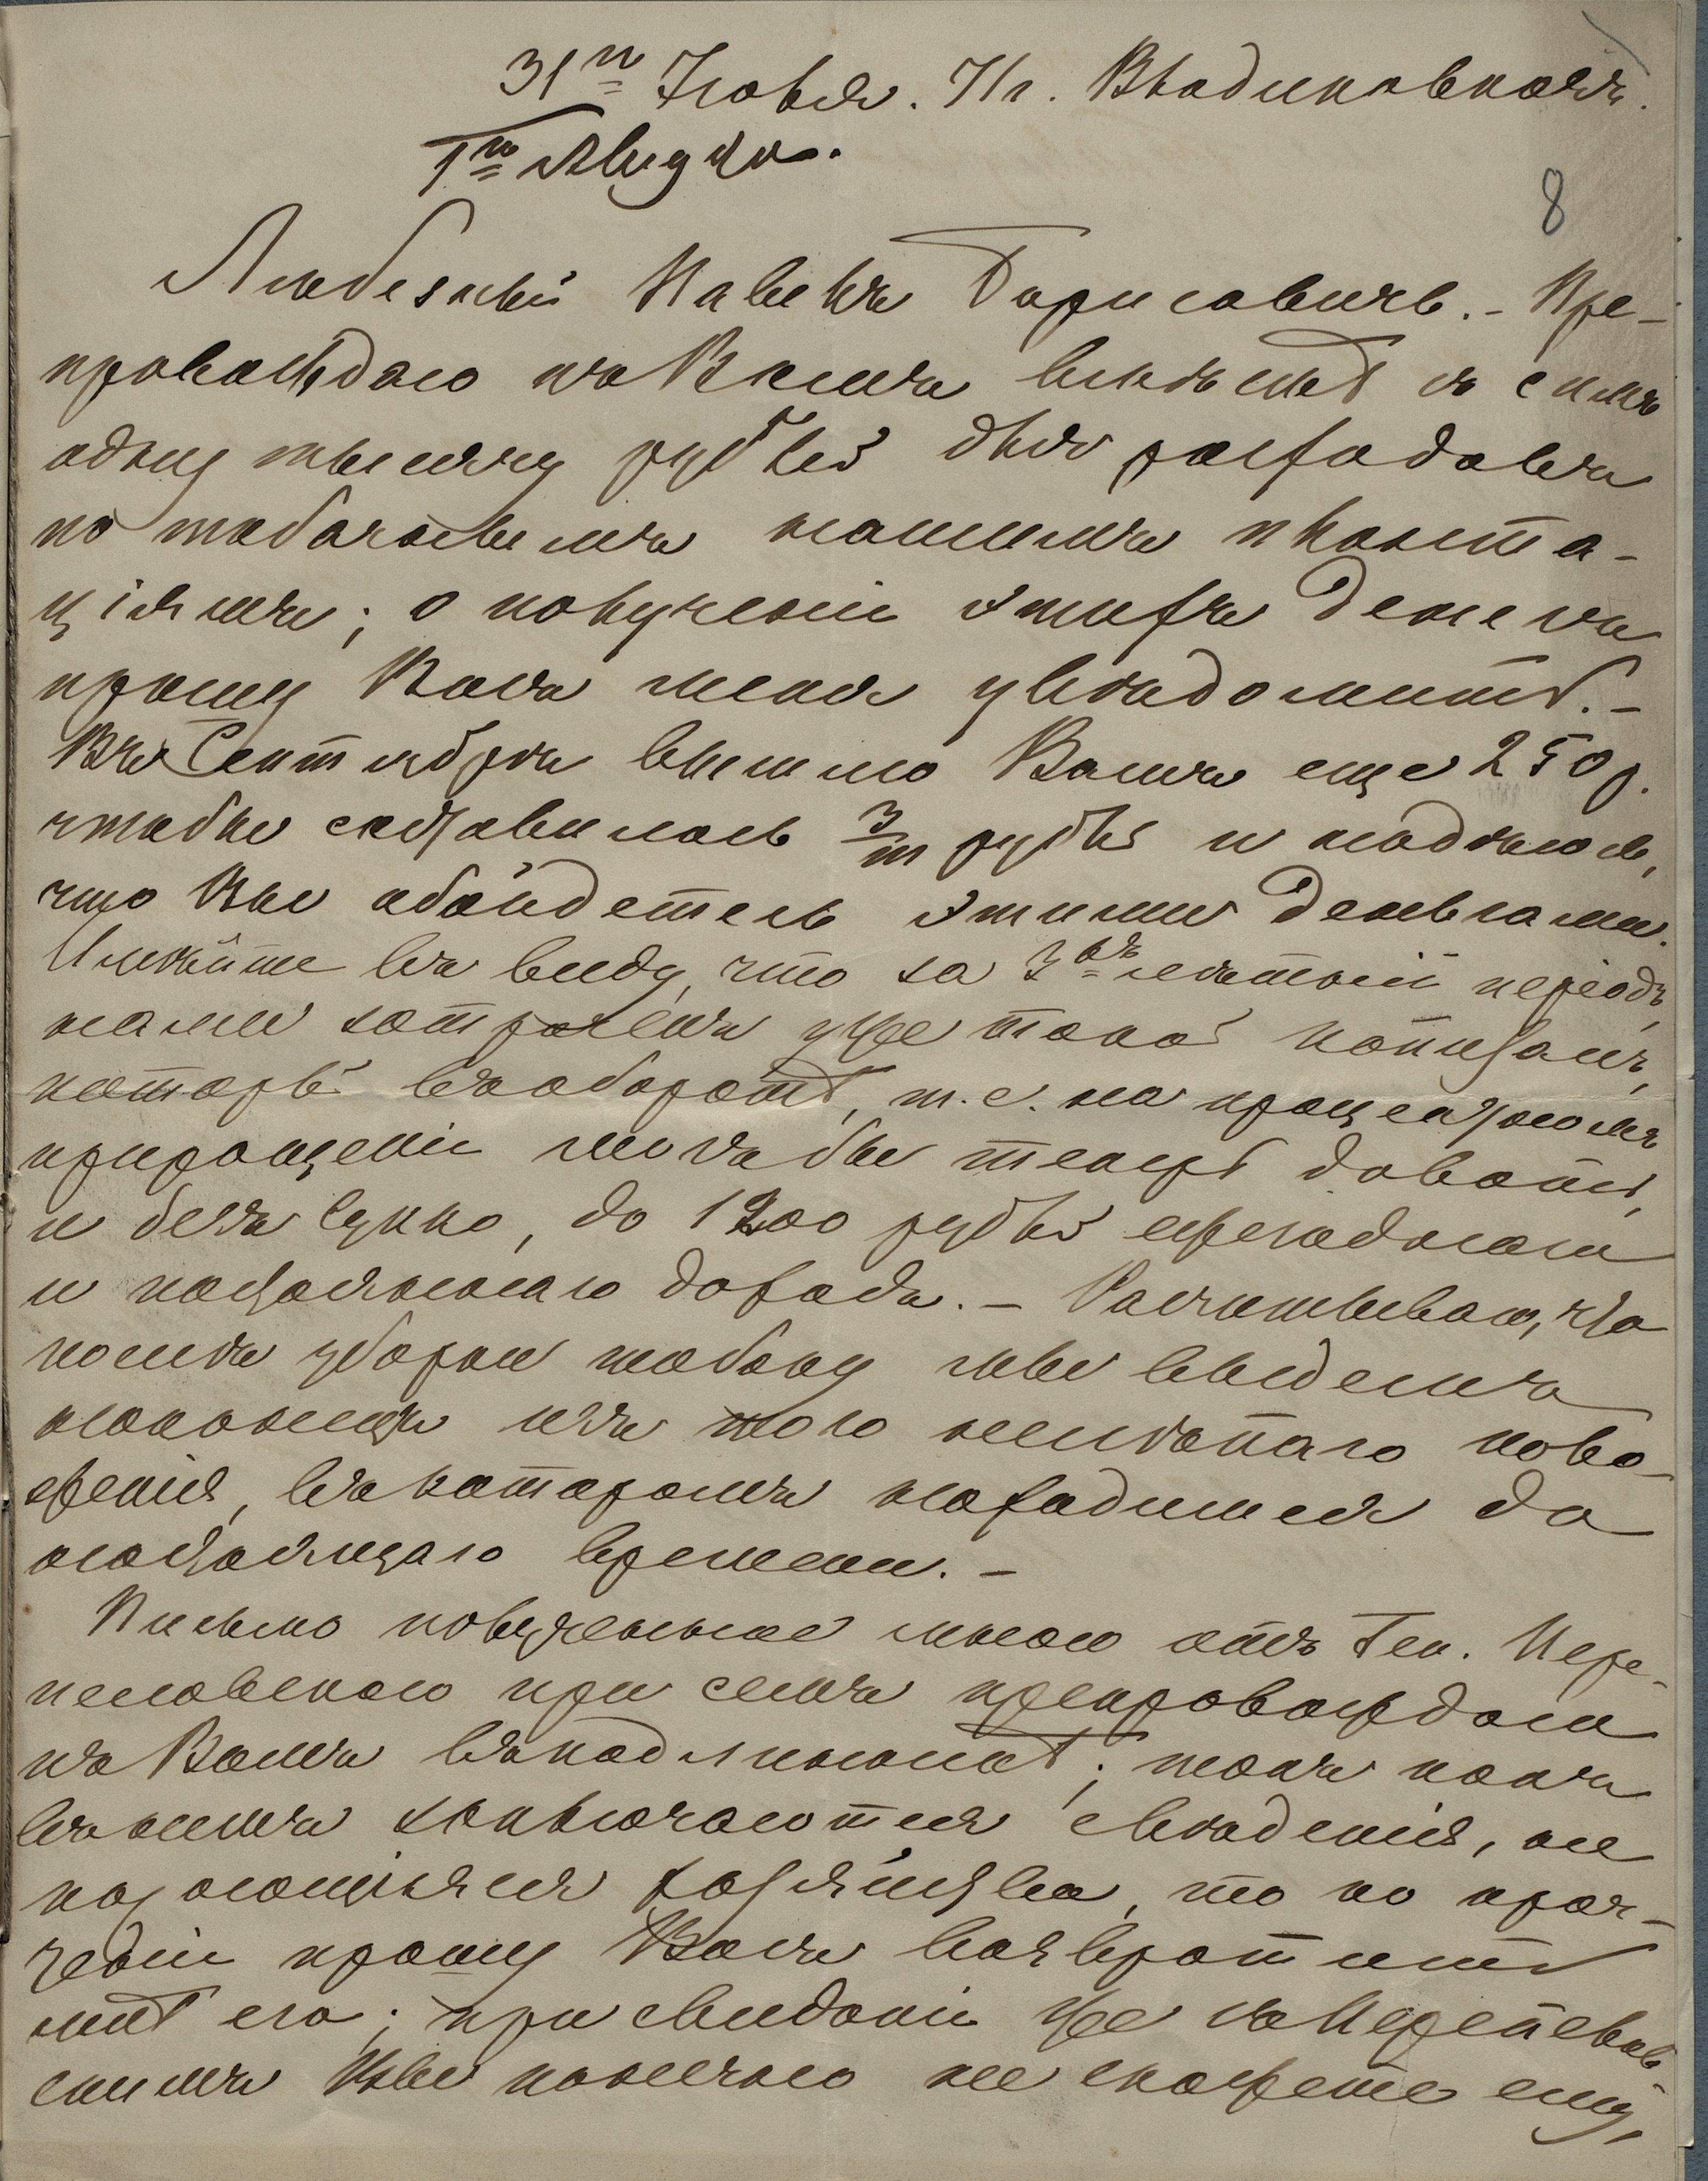 31го Іюля. Кр. Владикавказъ.
1го Августа.
8
Любезный Павелъ Борисовичъ. - Пре-
провождаю къ Вамъ вмѣстѣ съ симъ
одну тысячу рублей для расходовъ
по табачнымъ нашимъ планта-
ціямъ; о полученіи этихъ денегъ
прошу Васъ меня увѣдомить. -
Въ Сентябрѣ вышлю Вамъ еще 250 р.
чтобы составилось 3/т рублей и надѣюсь,
что Вы обойдетесь этими деньгами.
Имѣйте въ виду, что за 3хъ лѣтній періодъ
нами затраченъ уже такой капиталъ,
который въ оборотѣ, т.е. на процентномъ
приращеніи могъ бы теперь давать,
и безъ сукко, до 1200 рублей ежегоднаго
и постояннаго дохода. - Расчитываю, что
послѣ уборки табаку мы выдемъ
наконецъ изъ того нелѣпаго поло-
женія, въ которомъ находимся до
настоящаго времени. -
Письмо полученное мною отъ Ген. Пере-
пеловскаго при семъ препровождаю
къ Вамъ въ подлинникѣ; такъ какъ
въ немъ заключаются свѣдѣнія, не
касающіяся хозяйства, то по проч-
теніи прошу Васъ возвратить
мнѣ его; при свиданіи же съ Перепелов-
скимъ Вы конечно не скажете ему,